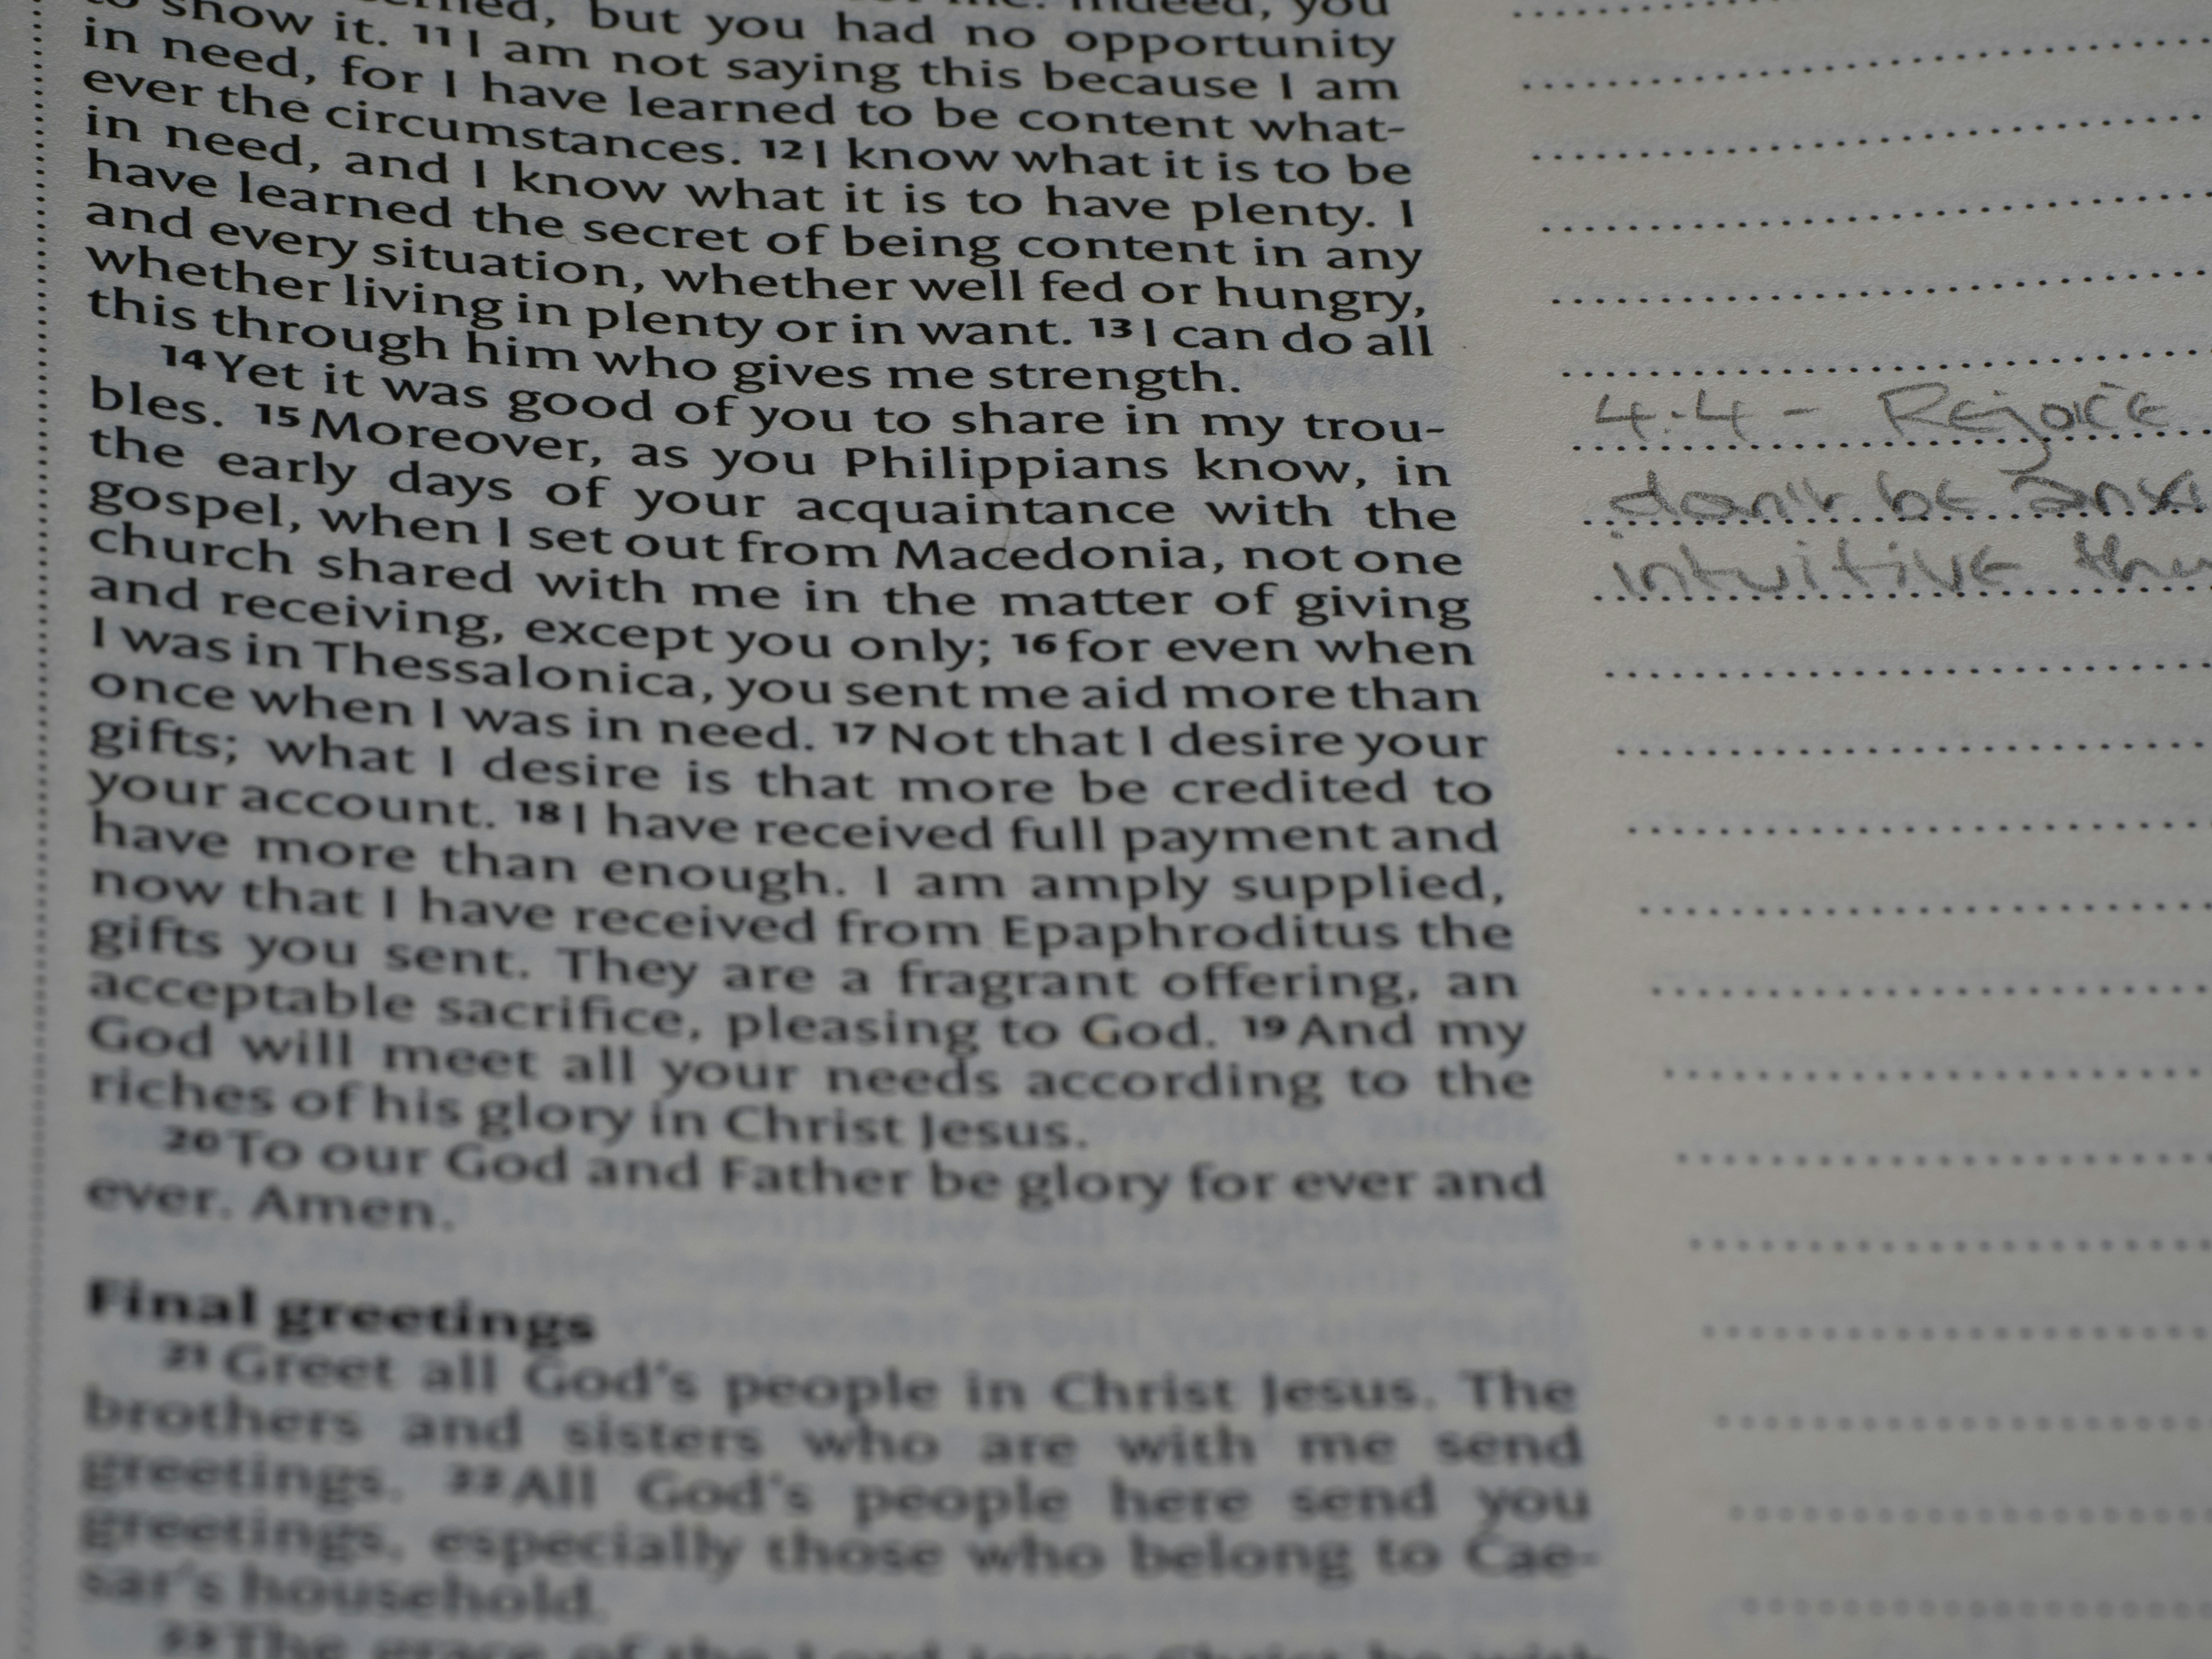 but you had no opportunity
to show it. 11 I am not saying this because I am
in need, for I have learned to be content what-
ever the circumstances. 12 I know what it is to be
in need, and I know what it is to have plenty. I
have learned the secret of being content in any
and every situation, whether well fed or hungry,
whether living in plenty or in want. 13 I can do all
this through him who gives me strength.
14 Yet it was good of you to share in my trou-
bles. 15 Moreover, as you Philippians know, in
the early days of your acquaintance with the
gospel, when I set out from Macedonia, not one
church shared with me in the matter of giving
and receiving, except you only; 16 for even when
I was in Thessalonica, you sent me aid more than
once when I was in need. 17 Not that I desire your
gifts; what I desire is that more be credited to
your account. 18 I have received full payment and
have more than enough. I am amply supplied,
now that I have received from Epaphroditus the
gifts you sent. They are a fragrant offering, an
acceptable sacrifice, pleasing to God. 19 And my
God will meet all your needs according to the
riches of his glory in Christ Jesus.
20 To our God and Father be glory for ever and
ever. Amen.
Final greetings
21 Greet all God's people in Christ Jesus. The
brothers and sisters who are with me send
greetings. 22 All God's people here send you
greetings, especially those who belong to Cae-
sar's household.
23 The grace of the Lord Jesus Christ be with
4:4 - Rejoice
don't be
intuitive